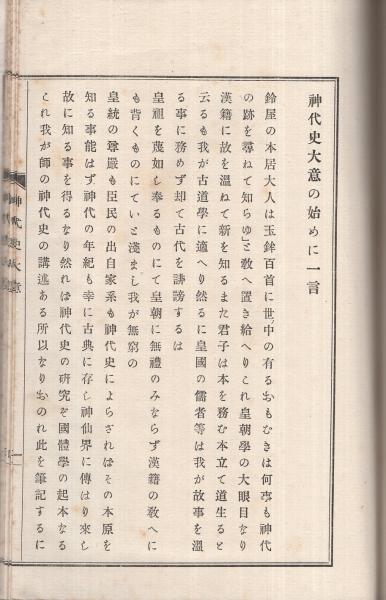 神代史大意の始めに一言
鈴屋の本居大人は玉鉾百首に世中の有るおもむきは何事も神代
の跡を尋ねて知らゆ」と敎へ置き給へりこれ皇朝學の大眼目なり
漢籍に故を溫ねて新を知るまた君子は本を務む本立て道生ると
云るも我が古道學に適へり然るに皇國の儒者等は我が故事を溫
る事に務めず却て古代を誹謗するは
皇祖を蔑如し奉るものにて皇朝に無禮のみならず漢籍の敎へに
も背くものにていと淺まし我が無窮の
皇統の尊嚴も臣民の出自家系も神代史によらされはその本原を
知る事能はず神代の年紀も幸に古典に存し神仙界に傳はり來し
故に知る事を得るなり然れは神代史の研究そ國體學の起本なる
これ我が師の神代史の講述ある所以なりおのれ此を筆記するに
神代史大意
一